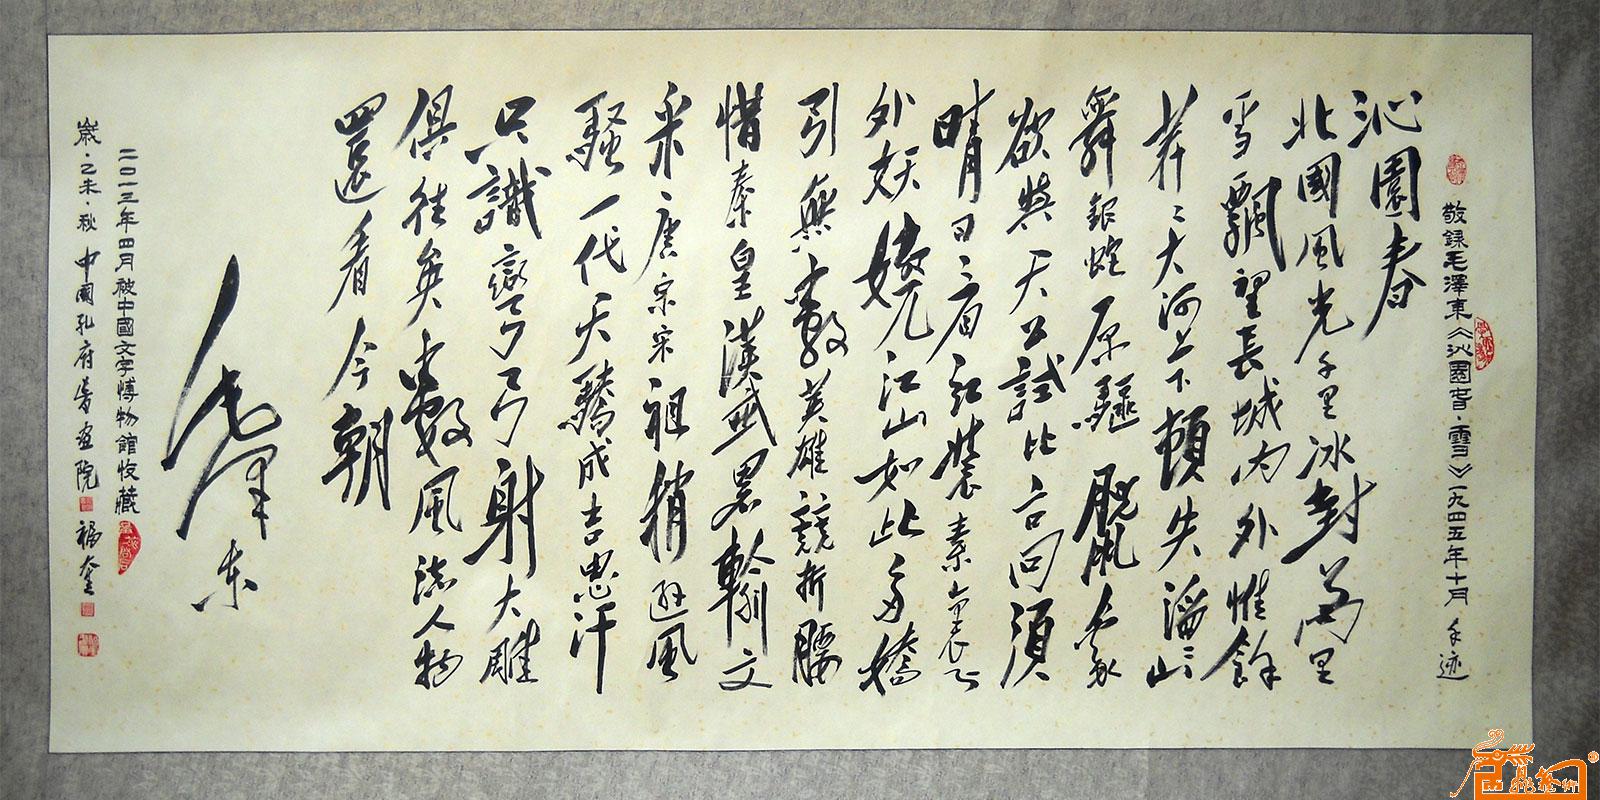 敬録毛澤東《沁園春·雪》一九四五年十月 手迹
沁園春
北國風光千里冰封萬里
雪飄望長城内外惟餘
莽〻大河上下頓失滔〻山
舞銀蛇原驅臘象
欲與天公試比高須
晴日看紅裝素裹分
外妖嬈江山如此多嬌
引無數英雄競折腰
惜秦皇漢武畧輸文
采唐宗宋祖稍遜風
騷一代天驕成吉思汗
只識彎弓射大雕
俱往矣數風流人物
還看今朝
毛澤東
二〇一三年四月被中國文字博物館收藏
歲·乙未·秋 中國孔府書畫院 福奎